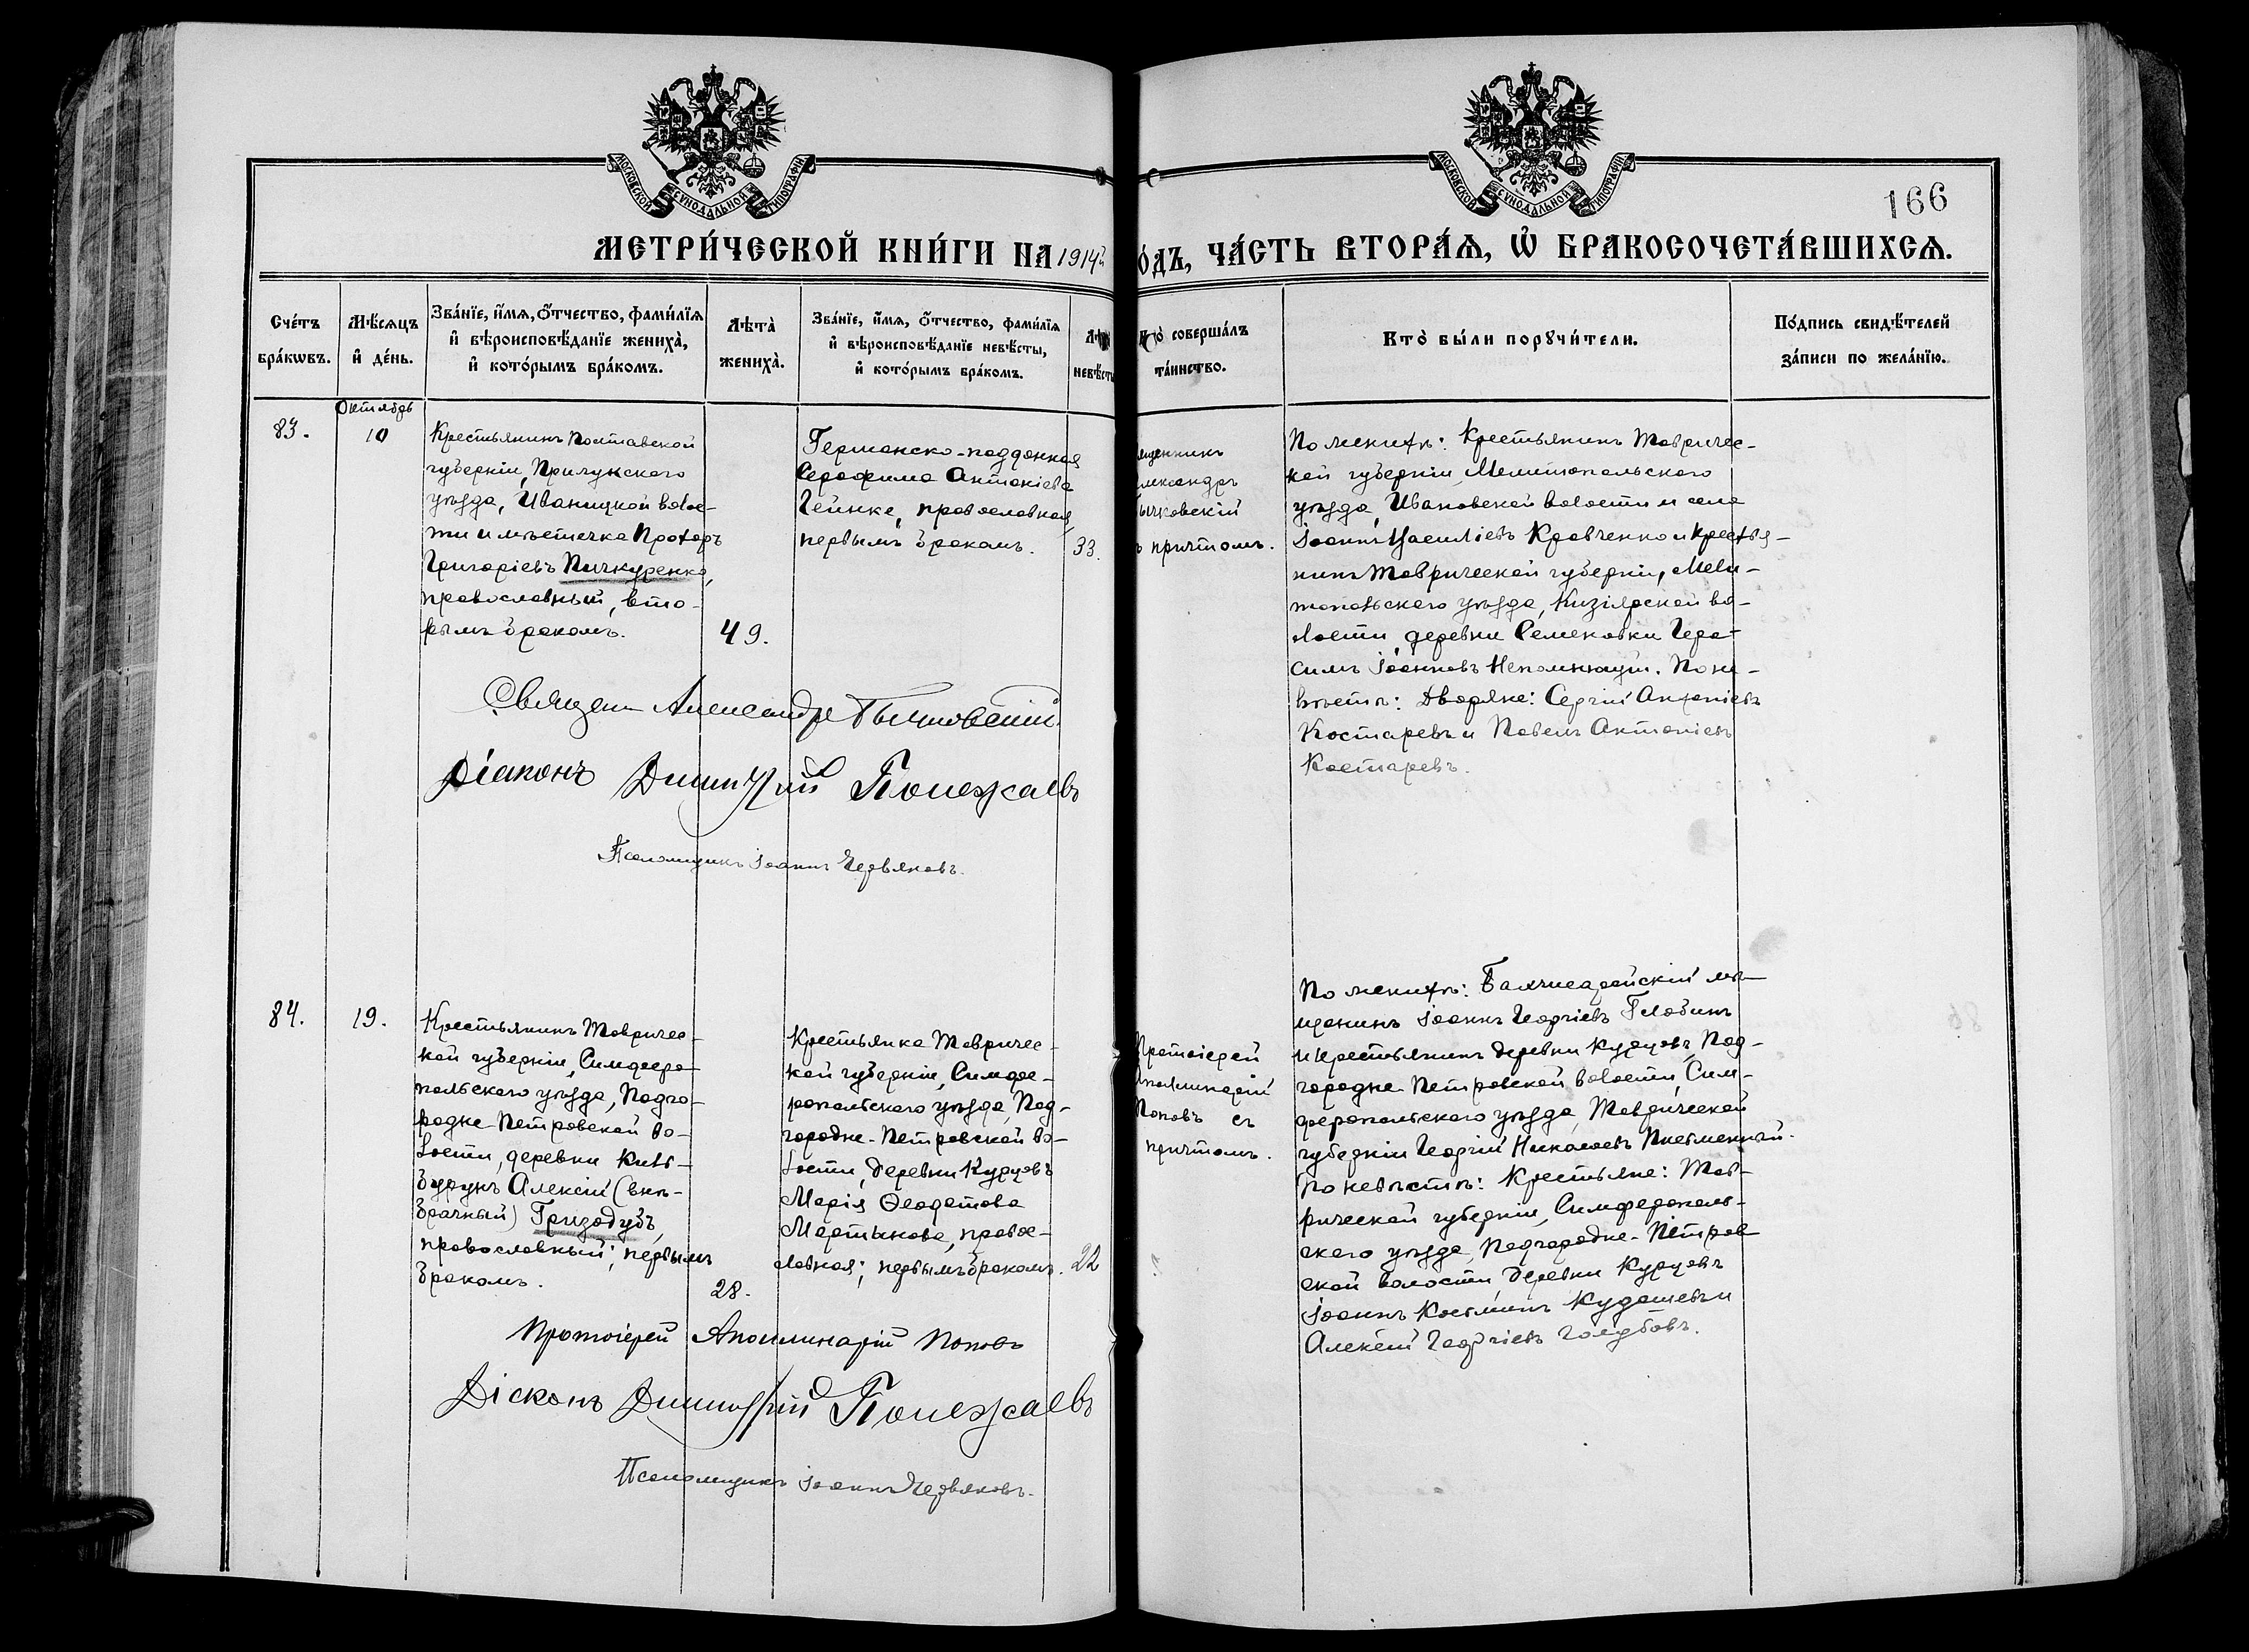 МОСКОВСКОЙ СУНОДАЛЬНОЙ ТИПОГРАФІИ
МОСКОВСКОЙ СУНОДАЛЬНОЙ ТИПОГРАФІИ
166
МЕТРИ́ЧЕСКОЙ КНИ́ГИ НА 1914й
О́ДЪ, ЧА́СТЬ ВТОРА́Ѧ, Ѡ҆ БРАКОСОЧЕТА́ВШИХСѦ.
Сче́тъ
бра́кѡвъ.
Мѣ́сѧцъ
и҆ де́нь.
Зва́нїе, и҆́мѧ, ѻ҆́тчество, фами́лїѧ
и҆ вѣроисповѣ́данїе жениха̀,
и҆ кото́рымъ бра́комъ.
Лѣта̀
жениха̀.
Зва́нїе, и҆́мѧ, ѻ҆́тчество, фами́лїѧ
и҆ вѣроисповѣ́данїе невѣ́сты,
и҆ кото́рымъ бра́комъ.
Лѣ
невѣ́сты
Кто̀ соверша́лъ
та́инство.
Кто̀ бы́ли порꙋчи́тели.
По́дпись свидѣ́телей
за́писи по жела́нїю.
83.
Октябрь
10
Крестьянинъ Полтавской
губерніи, Прилукскаго
уѣзда, Иваницкой волос-
ти и мѣстечка Прохоръ
Григоріевъ Пичкуренко,
православный, вто-
рымъ бракомъ.
49.
Германско-подданная
Серафима Антоніева
Гейнке, православная,
первымъ бракомъ.
33.
ященникъ
лександръ
ычковскій
ъ причтомъ.
По женихѣ: Крестьянинъ Тавричес-
кой губерніи, Мелитопольскаго
уѣзда, Ивановской волости и села
Іоаннъ Василіевъ Кравченко и крестья-
нинъ Таврической губерніи, Мели-
топольскаго уѣзда, Кизіярской во-
лости, деревни Семеновки Гера-
симъ Іоанновъ Непомнющій. По не-
вѣстѣ: Дворяне: Сергій Антоніевъ
Костаревъ и Павелъ Антоніевъ
Костаревъ.
Священ Александръ Бычковскій.
Діаконъ Димитрій Полежаевъ
Псаломщикъ Іоаннъ Червяковъ.
84.
19.
Крестьянинъ Тавричес-
кой губерніи, Симферо-
польскаго уѣзда, Подго-
родне-Петровской во-
лости, деревни Киль-
бурунъ Алексій (внѣ-
брачный) Гризодубъ,
православный; первымъ
бракомъ.
28.
Крестьянка Тавричес-
кой губерніи, Симфе-
ропольскаго уѣзда, Под-
городне-Петровской во-
лости, деревни Курцовъ
Марія Ѳеодотова
Мартынова, правос-
лавная; первымъ бракомъ.
22
Протоіерей
Аполлинарій
Поповъ съ
причтомъ.
По женихѣ: Бахчисарайскій мѣ-
щанинъ Іоаннъ Георгіевъ Глобинъ
и крестьянинъ деревни Курцовъ, Под-
городне-Петровской волости, Сим-
феропольскаго уѣзда, Таврической
губерніи Георгій Николаевъ Письменный.
По невѣстѣ: Крестьяне: Тав-
рической губерніи, Симферополь-
скаго уѣзда, Подгородне-Петров-
ской волости, деревни Курцовъ
Іоаннъ Косминъ Кудашевъ и
Алексій Георгіевъ Голубовъ.
Протоіерей Аполлинарій Поповъ
Діаконъ Димитрій Полежаевъ
Псаломщикъ Іоаннъ Червяковъ.